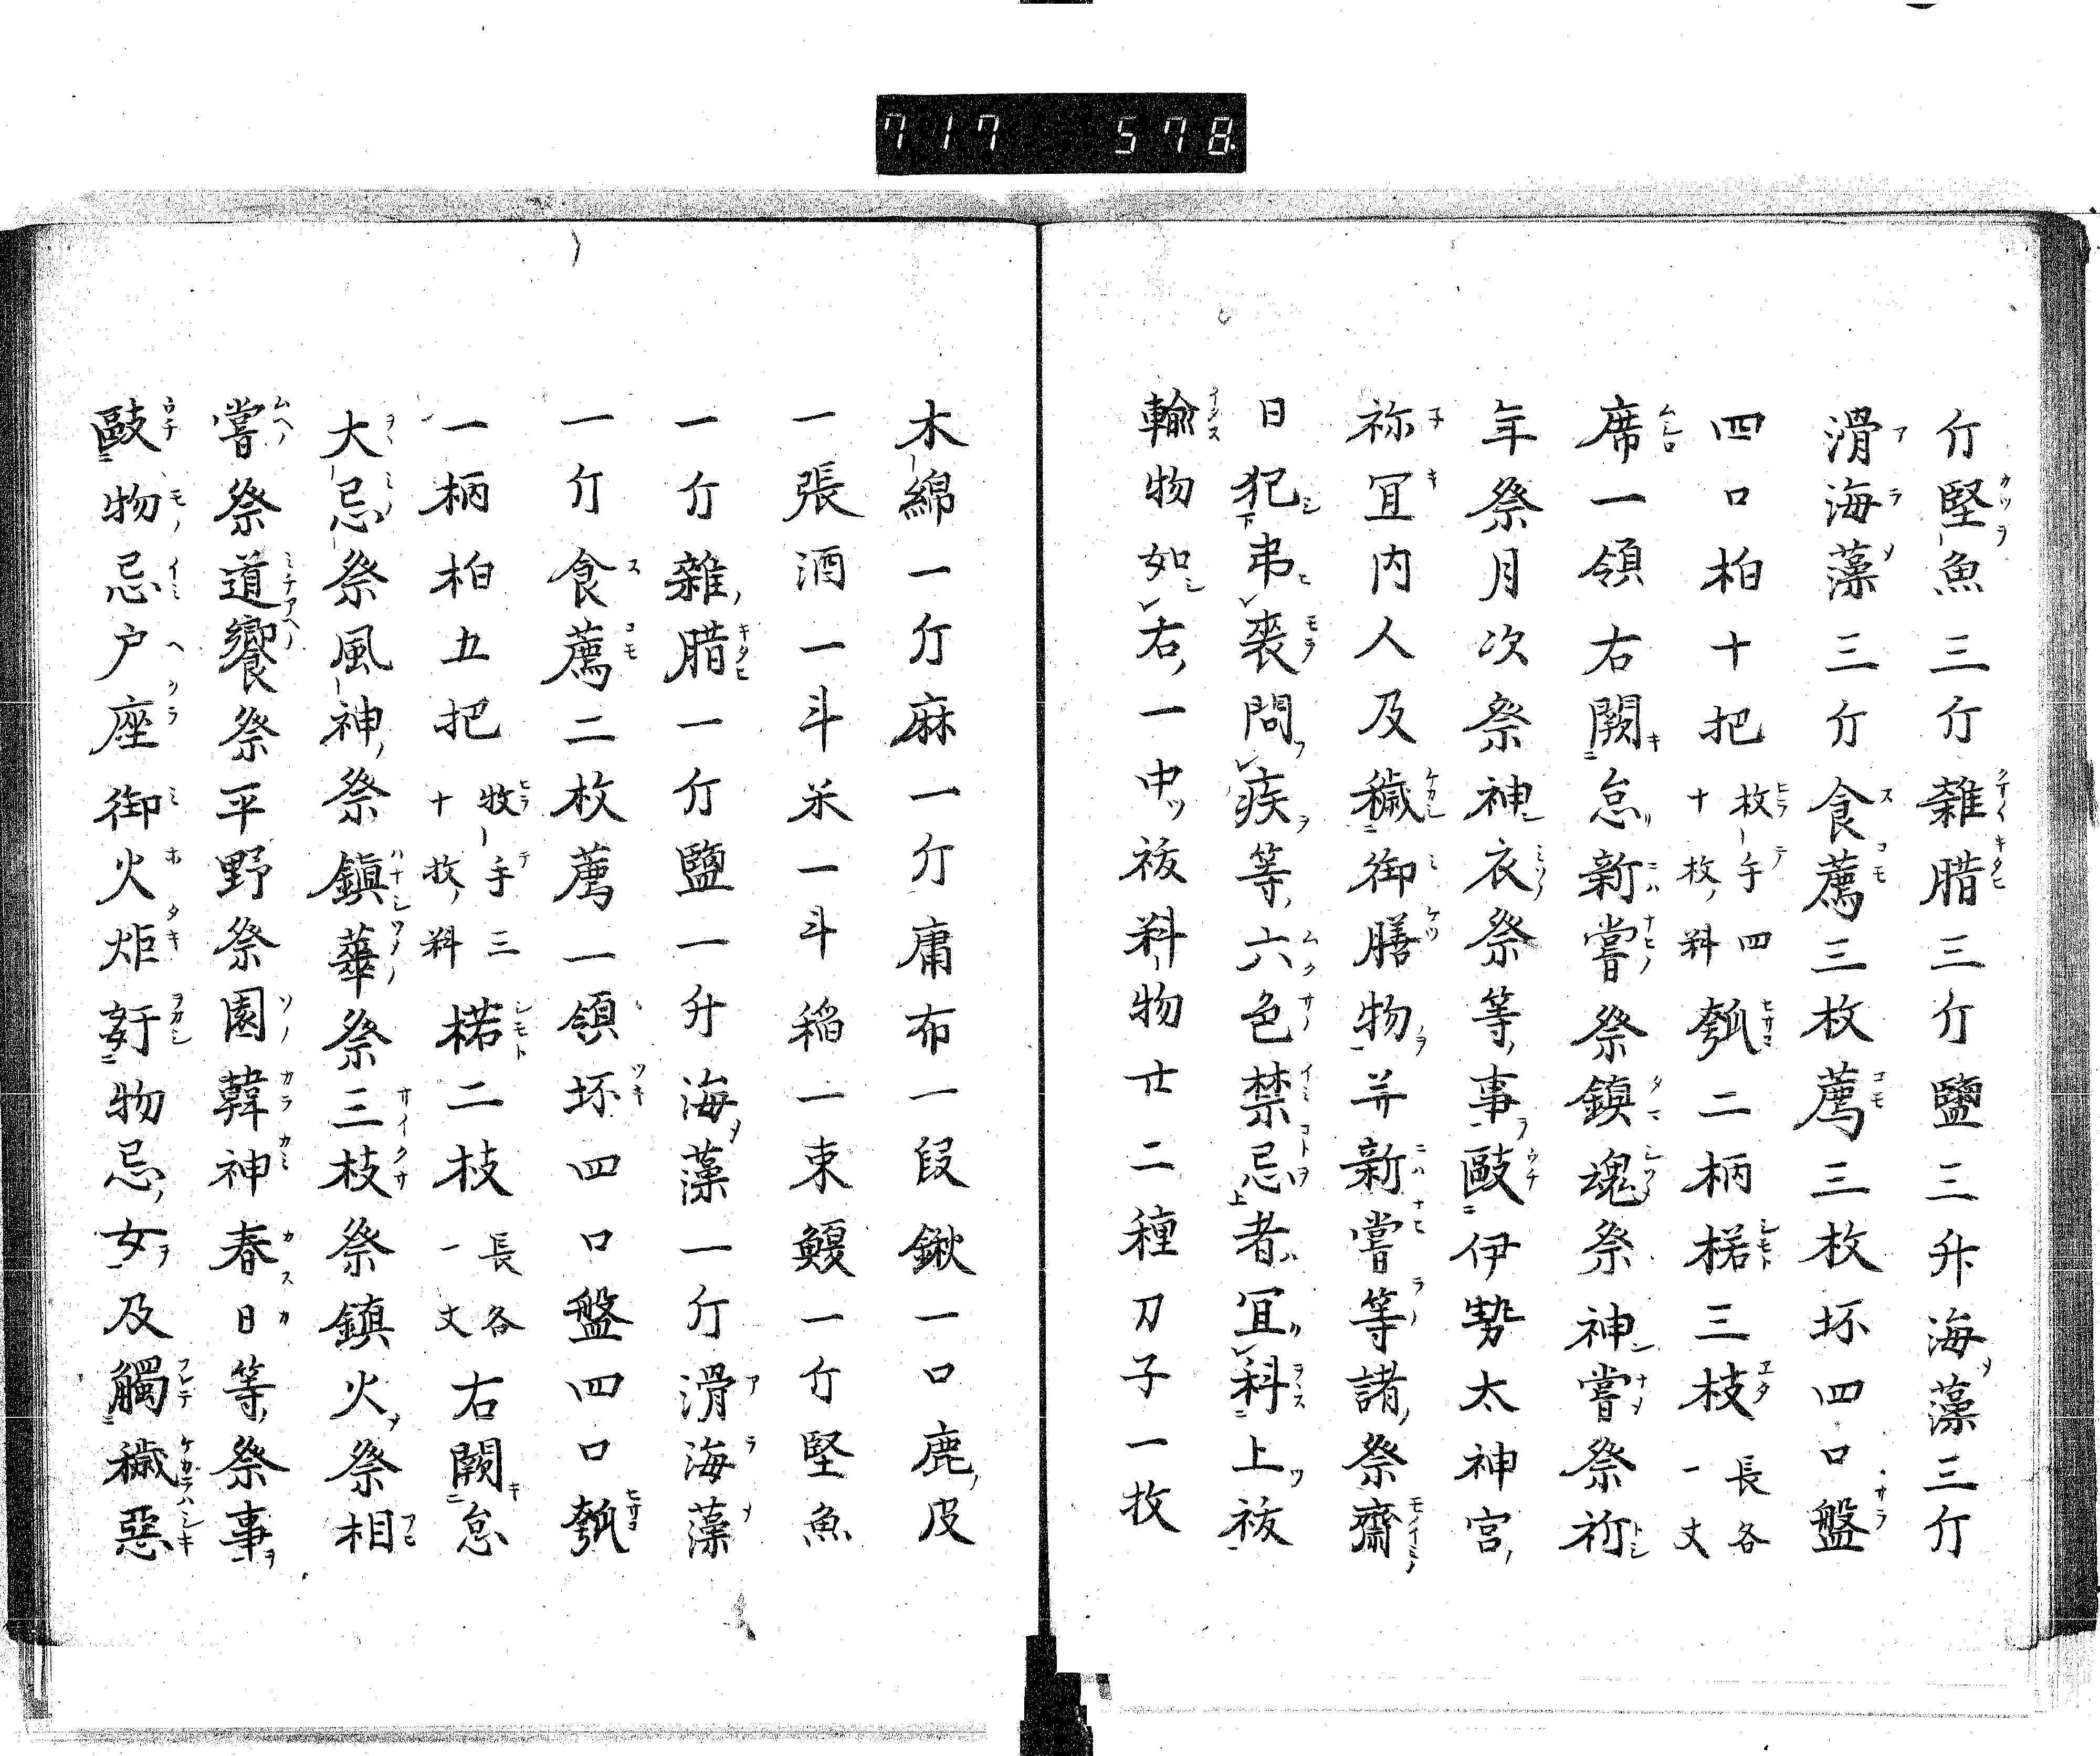 717 578
斤堅魚三斤雑腊三斤鹽三升海藻三斤
滑海藻三斤食薦三枚薦三枚坏四口盤
四口柏十把枚手四十枚料瓠二柄楉三枝長各一丈
席一領右闕怠新嘗祭鎮魂祭神嘗祭祈
年祭月次祭神衣祭等事敺伊勢太神宮
祢冝内人及穢御膳物并新嘗等諸祭齋
日犯弔裘問疾等六色禁忌者冝科上祓
輸物如右一中祓料物廿二種刀子一枚
木綿一斤麻一斤庸布一段鍬一口鹿皮
一張酒一斗米一斗稲一束鰒一斤堅魚
一斤雜腊一斤鹽一升海藻一斤滑海藻
一斤食薦二枚薦一領坏四口盤四口瓠
一柄柏五把牧手三十枚料楉二枝長各一丈右闕怠
大忌祭風神祭鎮華祭三枝祭鎮火祭相
嘗祭道饗祭平野祭園韓神春日等祭事
敺物忌戸座御火炬奸物忌女及觸穢惡